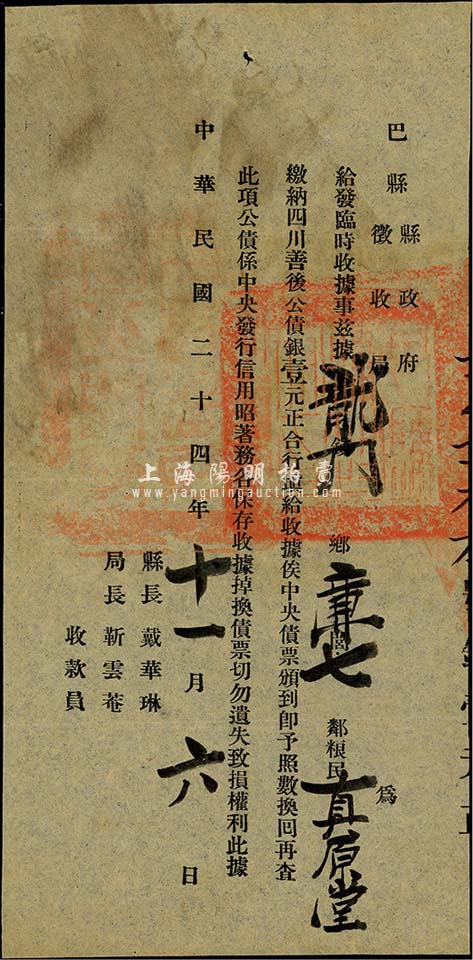 巴縣縣政府
徵收局
為
給發臨時收據事茲據龍門鄉 七鄰粮民真原堂
繳納四川善後公債銀壹元正合行 給收據俟中央債票頒到卽予照數換囘再査
此項公債係中央發行信用昭著務各保存收據掉換債票切勿遺失致損權利此據
縣長 戴華琳
局長 靳雲菴
收款員
中華民國二十四年十一月六日
上海陽明拍賣
www.yangmingauction.com